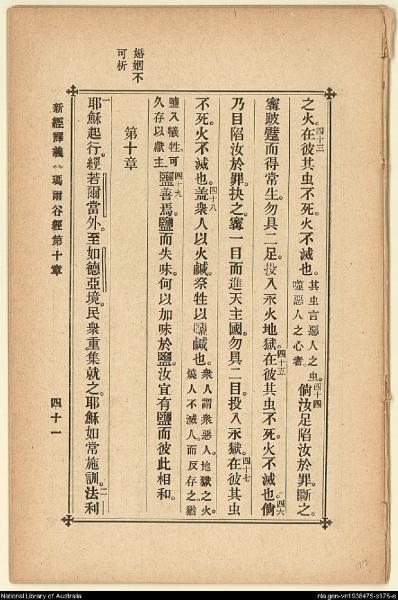 婚姻不
可析
之火在彼其虫不死火不滅也其虫言惡人之虫噬惡人之心者四十四倘汝足陷汝於罪斷之
寗跛躄而得常生勿具二足投入永火地獄四十五在彼其虫不死火不滅也四六倘
乃目陷汝於罪抉之寗一目而進天主國勿具二目投入永獄四十七在彼其虫
不死火不滅也四十八盖衆人以火鹹祭牲以鹽鹹也衆人謂衆惡人地獄之火燒人不滅人而反存之猶
鹽入犠牲可久存以獻主四十九鹽善焉鹽而失味何以加味於鹽汝宜有鹽而彼此相和
第十章
一耶穌起行經若爾當外至如德亞境民衆重集就之耶穌如常施訓二法利
新經譯義 瑪爾谷經第十章
四十一
National Library of Australia
nla.gen-vn1938475-s176-e